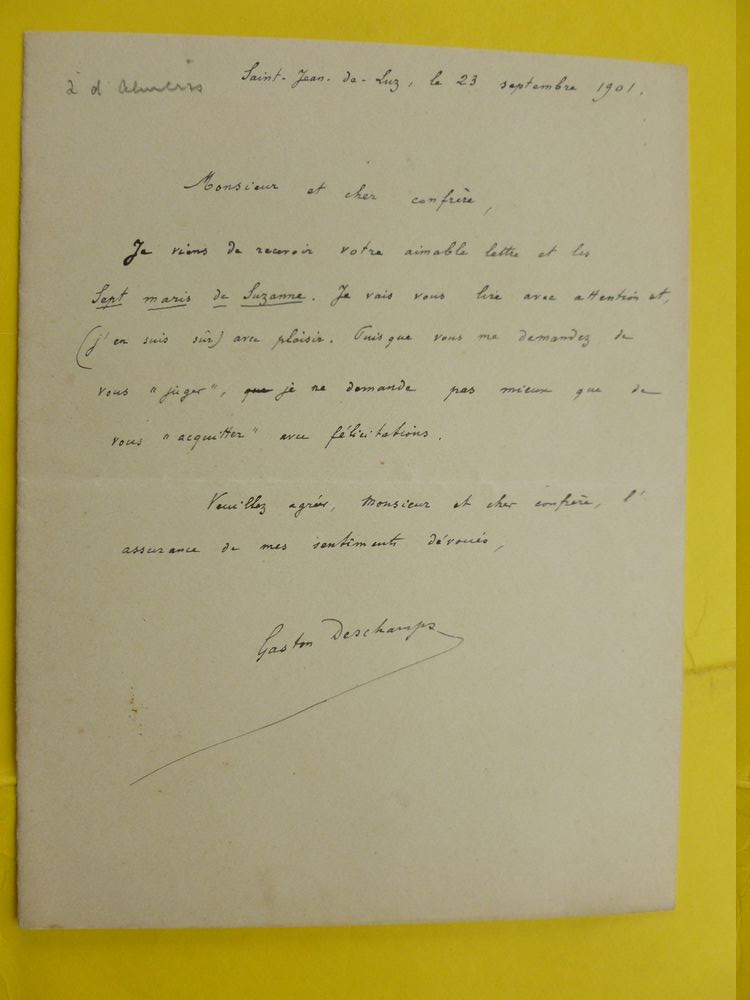 à d'Alméras
Saint-Jean-de-Luz, le 23 septembre 1901.
Monsieur et cher confrère,
Je viens de recevoir votre aimable lettre et les
Sept maris de Suzanne. Je vais vous lire avec attention et,
(j'en suis sûr) avec plaisir. Puisque vous me demandez de
vous "juger", que je ne demande pas mieux que de
vous "acquitter" avec félicitations.
Veuillez agréer, Monsieur et cher confrère, l'
assurance de mes sentiments dévoués,
Gaston Deschamps